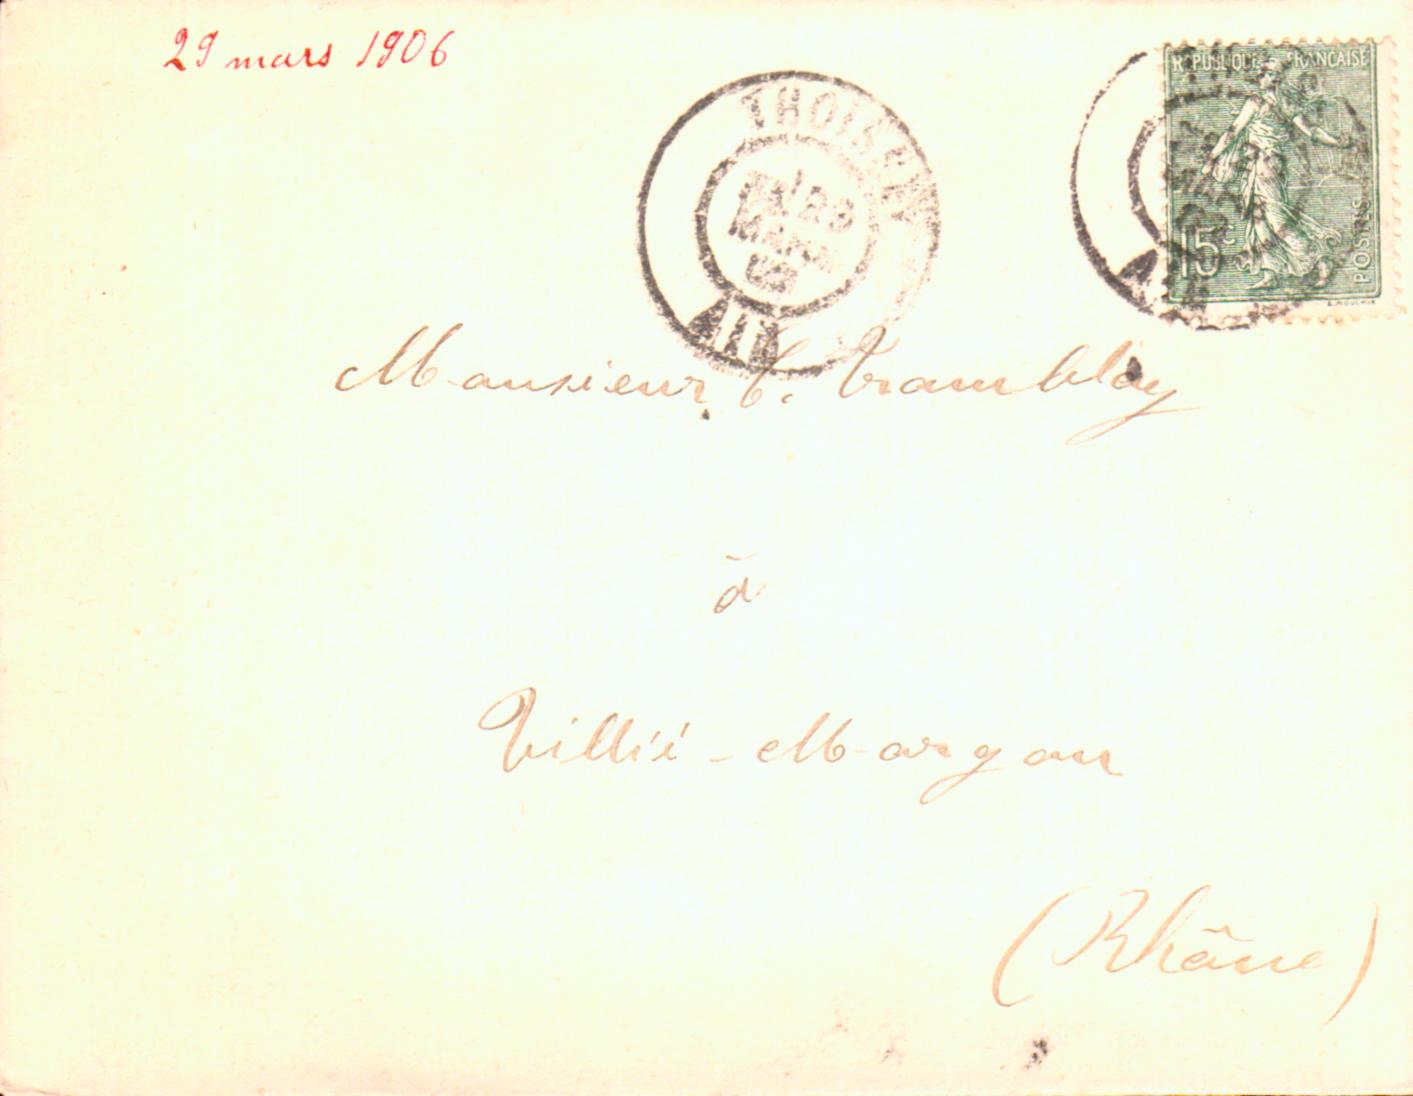 29 mars 1906
REPUBLIQUE FRANCAISE
15c
POSTES
THOISSEY
29
MARS
06
AIN
Monsieur C. Tramblay
à
Villié-Morgon
(Rhône)